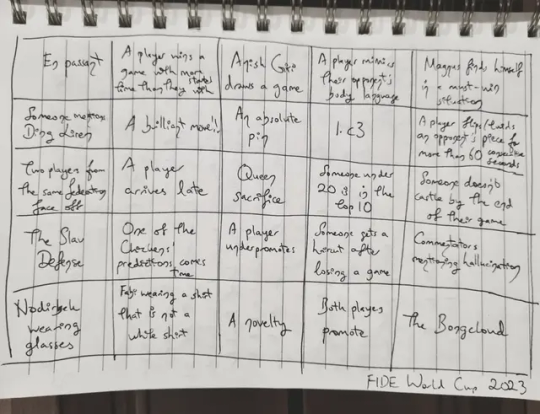 En passant
A player wins a
game with more
time than they started
with
Anish Giri
draws a game
A player mimics
their opponent's
body language
Magnus finds himself
in a must-win
situation
Someone mentions
Ding Liren
A brilliant move!!
An absolute
pin
1. c3
A player flips/holds
an opponent's piece for
more than 60 consecutive
seconds
Two players from
the same federation
face off
A player
arrives late
Queen
sacrifice
Someone under
20 is in the
top 10
Someone doesn't
castle by the end
of their game
The Slav
Defense
One of the
Chickens'
predictions comes
true
A player
underpromotes
Someone gets a
haircut after
losing a game
Commentators
mentioning hallucination
Nodirbek
wearing
glasses
Fabi wearing a shirt
that is not a
white shirt
A novelty
Both players
promote
The Bongcloud
FIDE World Cup 2023